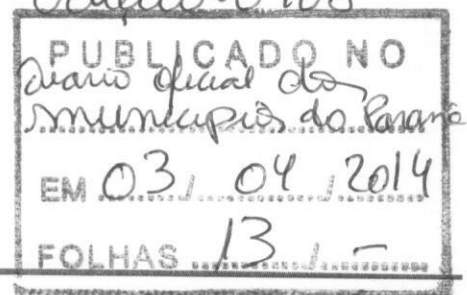 PUBLICADO NO
Diario oficial dos
municipios do Paraná
EM 03 / 04 / 2014
FOLHAS 13 / -